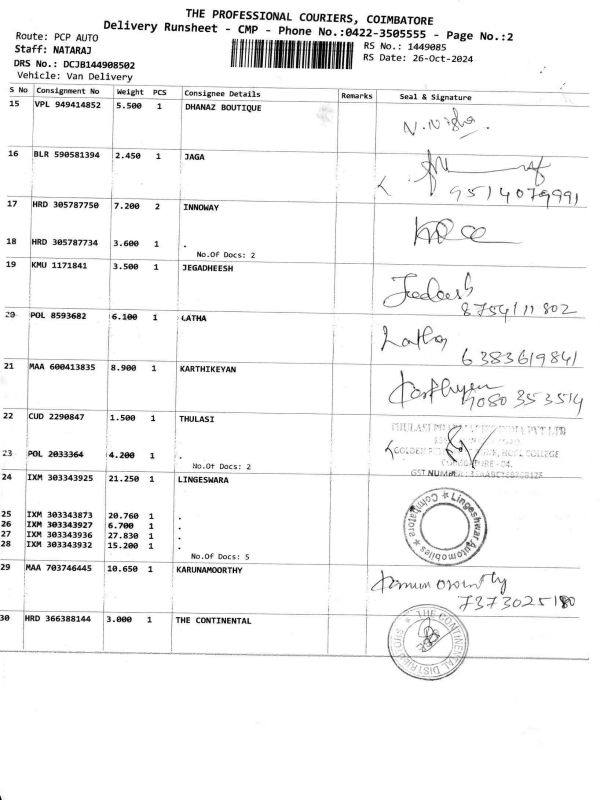 THE PROFESSIONAL COURIERS, COIMBATORE
Delivery Runsheet - CMP - Phone No.:0422-3505555 - Page No.:2
Route: PCP AUTO
Staff: NATARAJ
RS No.: 1449085
DRS No.: DCJB144908502
RS Date: 26-Oct-2024
Vehicle: Van Delivery
S No Consignment No Weight PCS Consignee Details Remarks Seal & Signature
15 VPL 949414852 5.500 1 DHANAZ BOUTIQUE
N. Nisha.
16 BLR 590581394 2.450 1 JAGA
9514079991
17 HRD 305787750 7.200 2 INNOWAY
18 HRD 305787734 3.600 1 .
No.Of Docs: 2
19 KMU 1171841 3.500 1 JEGADHEESH
8754111802
20 POL 8593682 6.100 1 LATHA
Latha
6383619841
21 MAA 600413835 8.900 1 KARTHIKEYAN
Karthiyen
9080353514
22 CUD 2290847 1.500 1 THULASI
THULASI PVT LTD
23 POL 2033364 4.200 1 .
GOLDEN COLLEGE
No.Of Docs: 2
COIMBATORE - 04.
GST NUMBER:
24 IXM 303343925 21.250 1 LINGESWARA
Lingeshwar Automobiles
Coimbatore
25 IXM 303343873 20.760 1 .
26 IXM 303343927 6.700 1 .
27 IXM 303343936 27.830 1 .
28 IXM 303343932 15.200 1 .
No.Of Docs: 5
29 MAA 703746445 10.650 1 KARUNAMOORTHY
7373025180
30 HRD 366388144 3.000 1 THE CONTINENTAL
THE CONTINENTAL DISTRIBUTORS